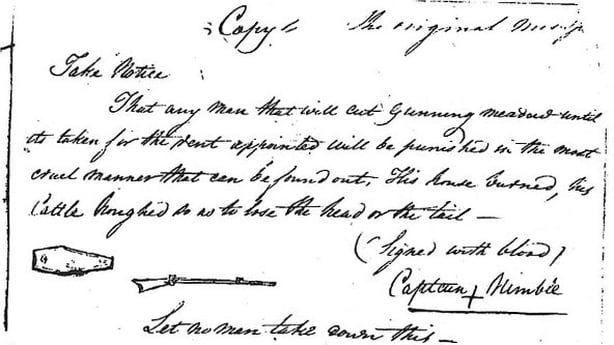 Copy The original
Take Notice
That any man that will cut Gunning meadow until
its taken for the rent appointed will be punished in the most
cruel manner that can be found out, His house burned, his
Cattle houghed so as to lose the head or the tail —
(Signed with blood)
Captain + Nimble
Let no man take down this —